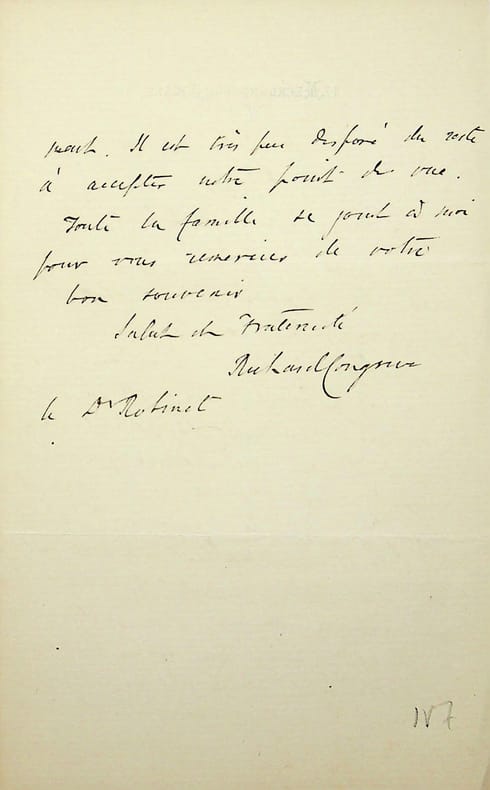 ment. Il est très peu disposé du reste
à accepter notre point de vue.
Toute la famille se joint à moi
pour vous remercier de votre
bon souvenir
Salut et Fraternité
Richard Congreve
le Dr Robinet